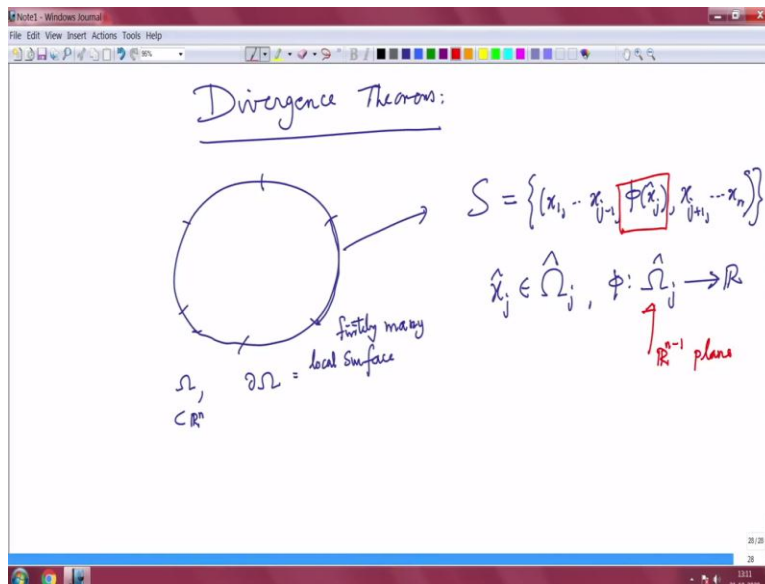 Note1 - Windows Journal
File Edit View Insert Actions Tools Help
96%
Divergence Theorem:
S = {(x₁, .. x_{j-1}, φ(x̂_j), x_{j+1}, ... x_n)}
x̂_j ∈ Ω̂_j, φ: Ω̂_j → ℝ
ℝⁿ⁻¹ plane
Ω, ∂Ω = finitely many
local surface
⊂ ℝⁿ
28/28
28
13:11